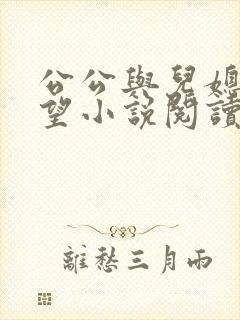 公公與兒媳
望小說閱讀
離愁三月雨